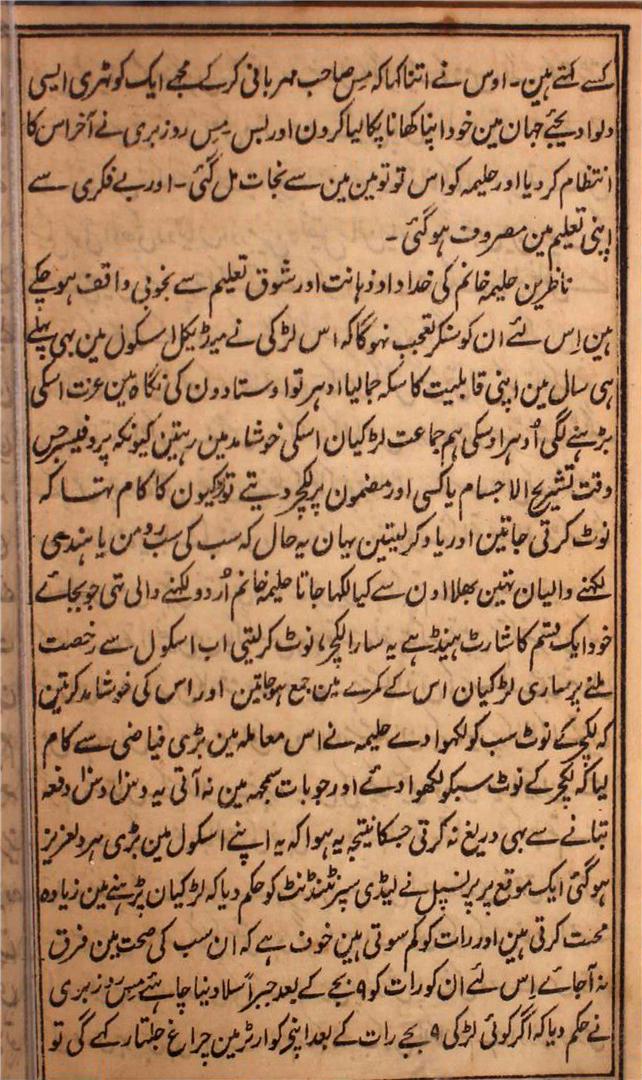 کسے کہتے ہین۔ اوس نے اتنا کہا کہ مس صاحب مہربانی کرکے مجھے ایک کوٹہری ایسی
دلوا دیجئے جہان مین خود اپنا کھانا پکا لیا کرون اور بس۔ مس روزبری نے آخر اس کا
انتظام کر دیا اور حلیمہ کو اس تو تو مین مین سے نجات مل گئی۔ اور بے فکری سے
اپنی تعلیم مین مصروف ہو گئی۔
ناظرین حلیمہ خانم کی خداداد ذہانت اور شوق تعلیم سے بخوبی واقف ہو چکے
ہین اِس لئے ان کو سنکر تعجب نہوگا کہ اس لڑکی نے میڈیکل اسکول مین بہی پہلے
ہی سال مین اپنی قابلیت کا سکہ جما لیا ادہر تو اوستادون کی نگاہ مین عزت اسکی
بڑہنے لگی اُدہر اوسکی ہم جماعت لڑکیان اسکی خوشامد مین رہتین کیونکہ پروفیسر جس
وقت تشریح الاجسام یا کسی اور مضمون پر لکچر دیتے تو لڑکیون کا کام یہ تہا کہ
نوٹ کرتی جاتین اور یاد کر لیتین یہان یہ حال کہ سب کی سب رومن یا ہندی
لکہنے والیان تہین بہلا اون سے کیا لکہا جاتا حلیمہ خانم اُردو لکہنے والی تہی جو بجائے
خود ایک قسم کا شارٹ ہینڈ ہے یہ سارا لکچر نوٹ کر لیتی اب اسکول سے رخصت
ملنے پر ساری لڑکیان اس کے کمرے مین جمع ہو جاتین اور اس کی خوشامد کرتین
کہ لکچر کے نوٹ سب کو لکھوا دے حلیمہ نے اس معاملہ مین بڑی فیاضی سے کام
لیا کہ لکچر کے نوٹ سبکو لکھوا دئے اور جو بات سمجہہ مین نہ آتی یہ دس دس دفعہ
بتانے سے بہی دریغ نہ کرتی جسکا نتیجہ یہ ہوا کہ یہ اپنے اسکول مین بڑی ہردلعزیز
ہو گئی ایک موقع پر پرنسپل نے لیڈی سپرنٹنڈنٹ کو حکم دیا کہ لڑکیان پڑہنے مین زیادہ
محنت کرتی ہین اور رات کو کم سوتی ہین خوف ہے کہ ان سب کی صحت مین فرق
نہ آ جائے اِس لئے ان کو رات کو ۹ بجے کے بعد جبراً سلا دینا چاہئے مس روزبری
نے حکم دیا کہ اگر کوئی لڑکی ۹ بجے رات کے بعد اپنے کوارٹر مین چراغ جلتا رکہے گی تو